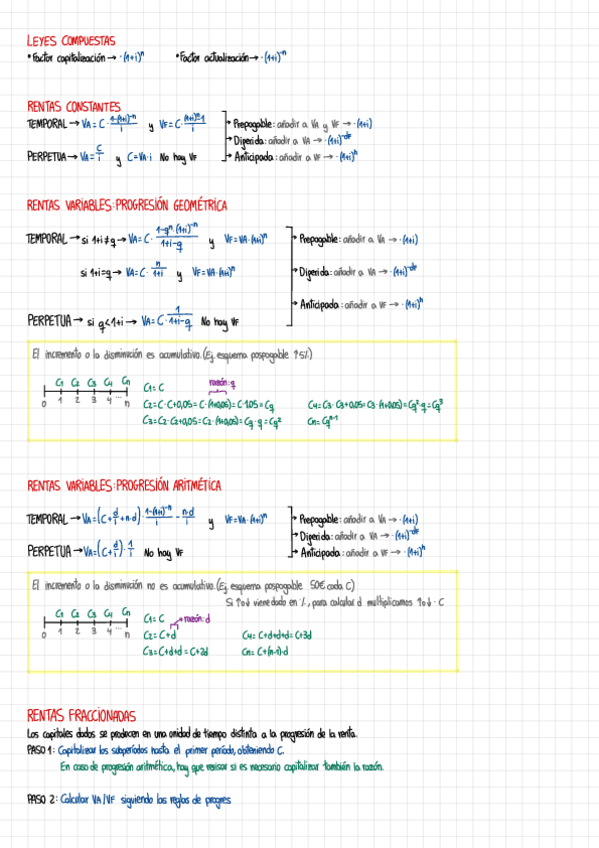 LEYES COMPUESTAS
• Factor capitalización → ·(1+i)^n • Factor actualización → ·(1+i)^-n
RENTAS CONSTANTES
TEMPORAL → VA = C · (1-(1+i)^-n)/i y VF = C · ((1+i)^n-1)/i → Prepagable: añadir a VA y VF → ·(1+i)
→ Diferida: añadir a VA → ·(1+i)^-dF
PERPETUA → VA = C/i y C = VA·i No hay VF → Anticipada: añadir a VF → ·(1+i)^h
RENTAS VARIABLES: PROGRESIÓN GEOMÉTRICA
TEMPORAL → si 1+i≠q → VA = C · (1-q^n·(1+i)^-n)/(1+i-q) y VF = VA·(1+i)^n → Prepagable: añadir a VA → ·(1+i)
si 1+i=q → VA = C · n/(1+i) y VF = VA·(1+i)^n → Diferida: añadir a VA → ·(1+i)^-dF
→ Anticipada: añadir a VF → ·(1+i)^h
PERPETUA → si q<1+i → VA = C · 1/(1+i-q) No hay VF
El incremento o la disminución es acumulativo. (Ej. esquema pospagable ↑5%)
C1 C2 C3 C4 Cn
0 1 2 3 4 ... n
C1 = C razón: q
C2 = C + C·0,05 = C·(1+0,05) = C·1,05 = Cq C4 = C3 + C3·0,05 = C3·(1+0,05) = Cq²·q = Cq³
C3 = C2 + C2·0,05 = C2·(1+0,05) = Cq·q = Cq² Cn = Cq^n-1
RENTAS VARIABLES: PROGRESIÓN ARITMÉTICA
TEMPORAL → VA = (C + d/i + n·d) · (1-(1+i)^-n)/i - n·d/i y VF = VA·(1+i)^n → Prepagable: añadir a VA → ·(1+i)
→ Diferida: añadir a VA → ·(1+i)^-dF
PERPETUA → VA = (C + d/i) · 1/i No hay VF → Anticipada: añadir a VF → ·(1+i)^h
El incremento o la disminución no es acumulativo. (Ej. esquema pospagable 50€ cada C)
Si ↑o↓ viene dado en %, para calcular d multiplicamos ↑o↓ · C
C1 C2 C3 C4 Cn
0 1 2 3 4 ... n
C1 = C razón: d
C2 = C+d C4 = C+d+d+d = C+3d
C3 = C+d+d = C+2d Cn = C+(n-1)·d
RENTAS FRACCIONADAS
Los capitales dados se producen en una unidad de tiempo distinta a la progresión de la renta.
PASO 1: Capitalizar los subperíodos hasta el primer período, obteniendo C.
En caso de progresión aritmética, hay que revisar si es necesario capitalizar también la razón.
PASO 2: Calcular VA/VF siguiendo las reglas de progres